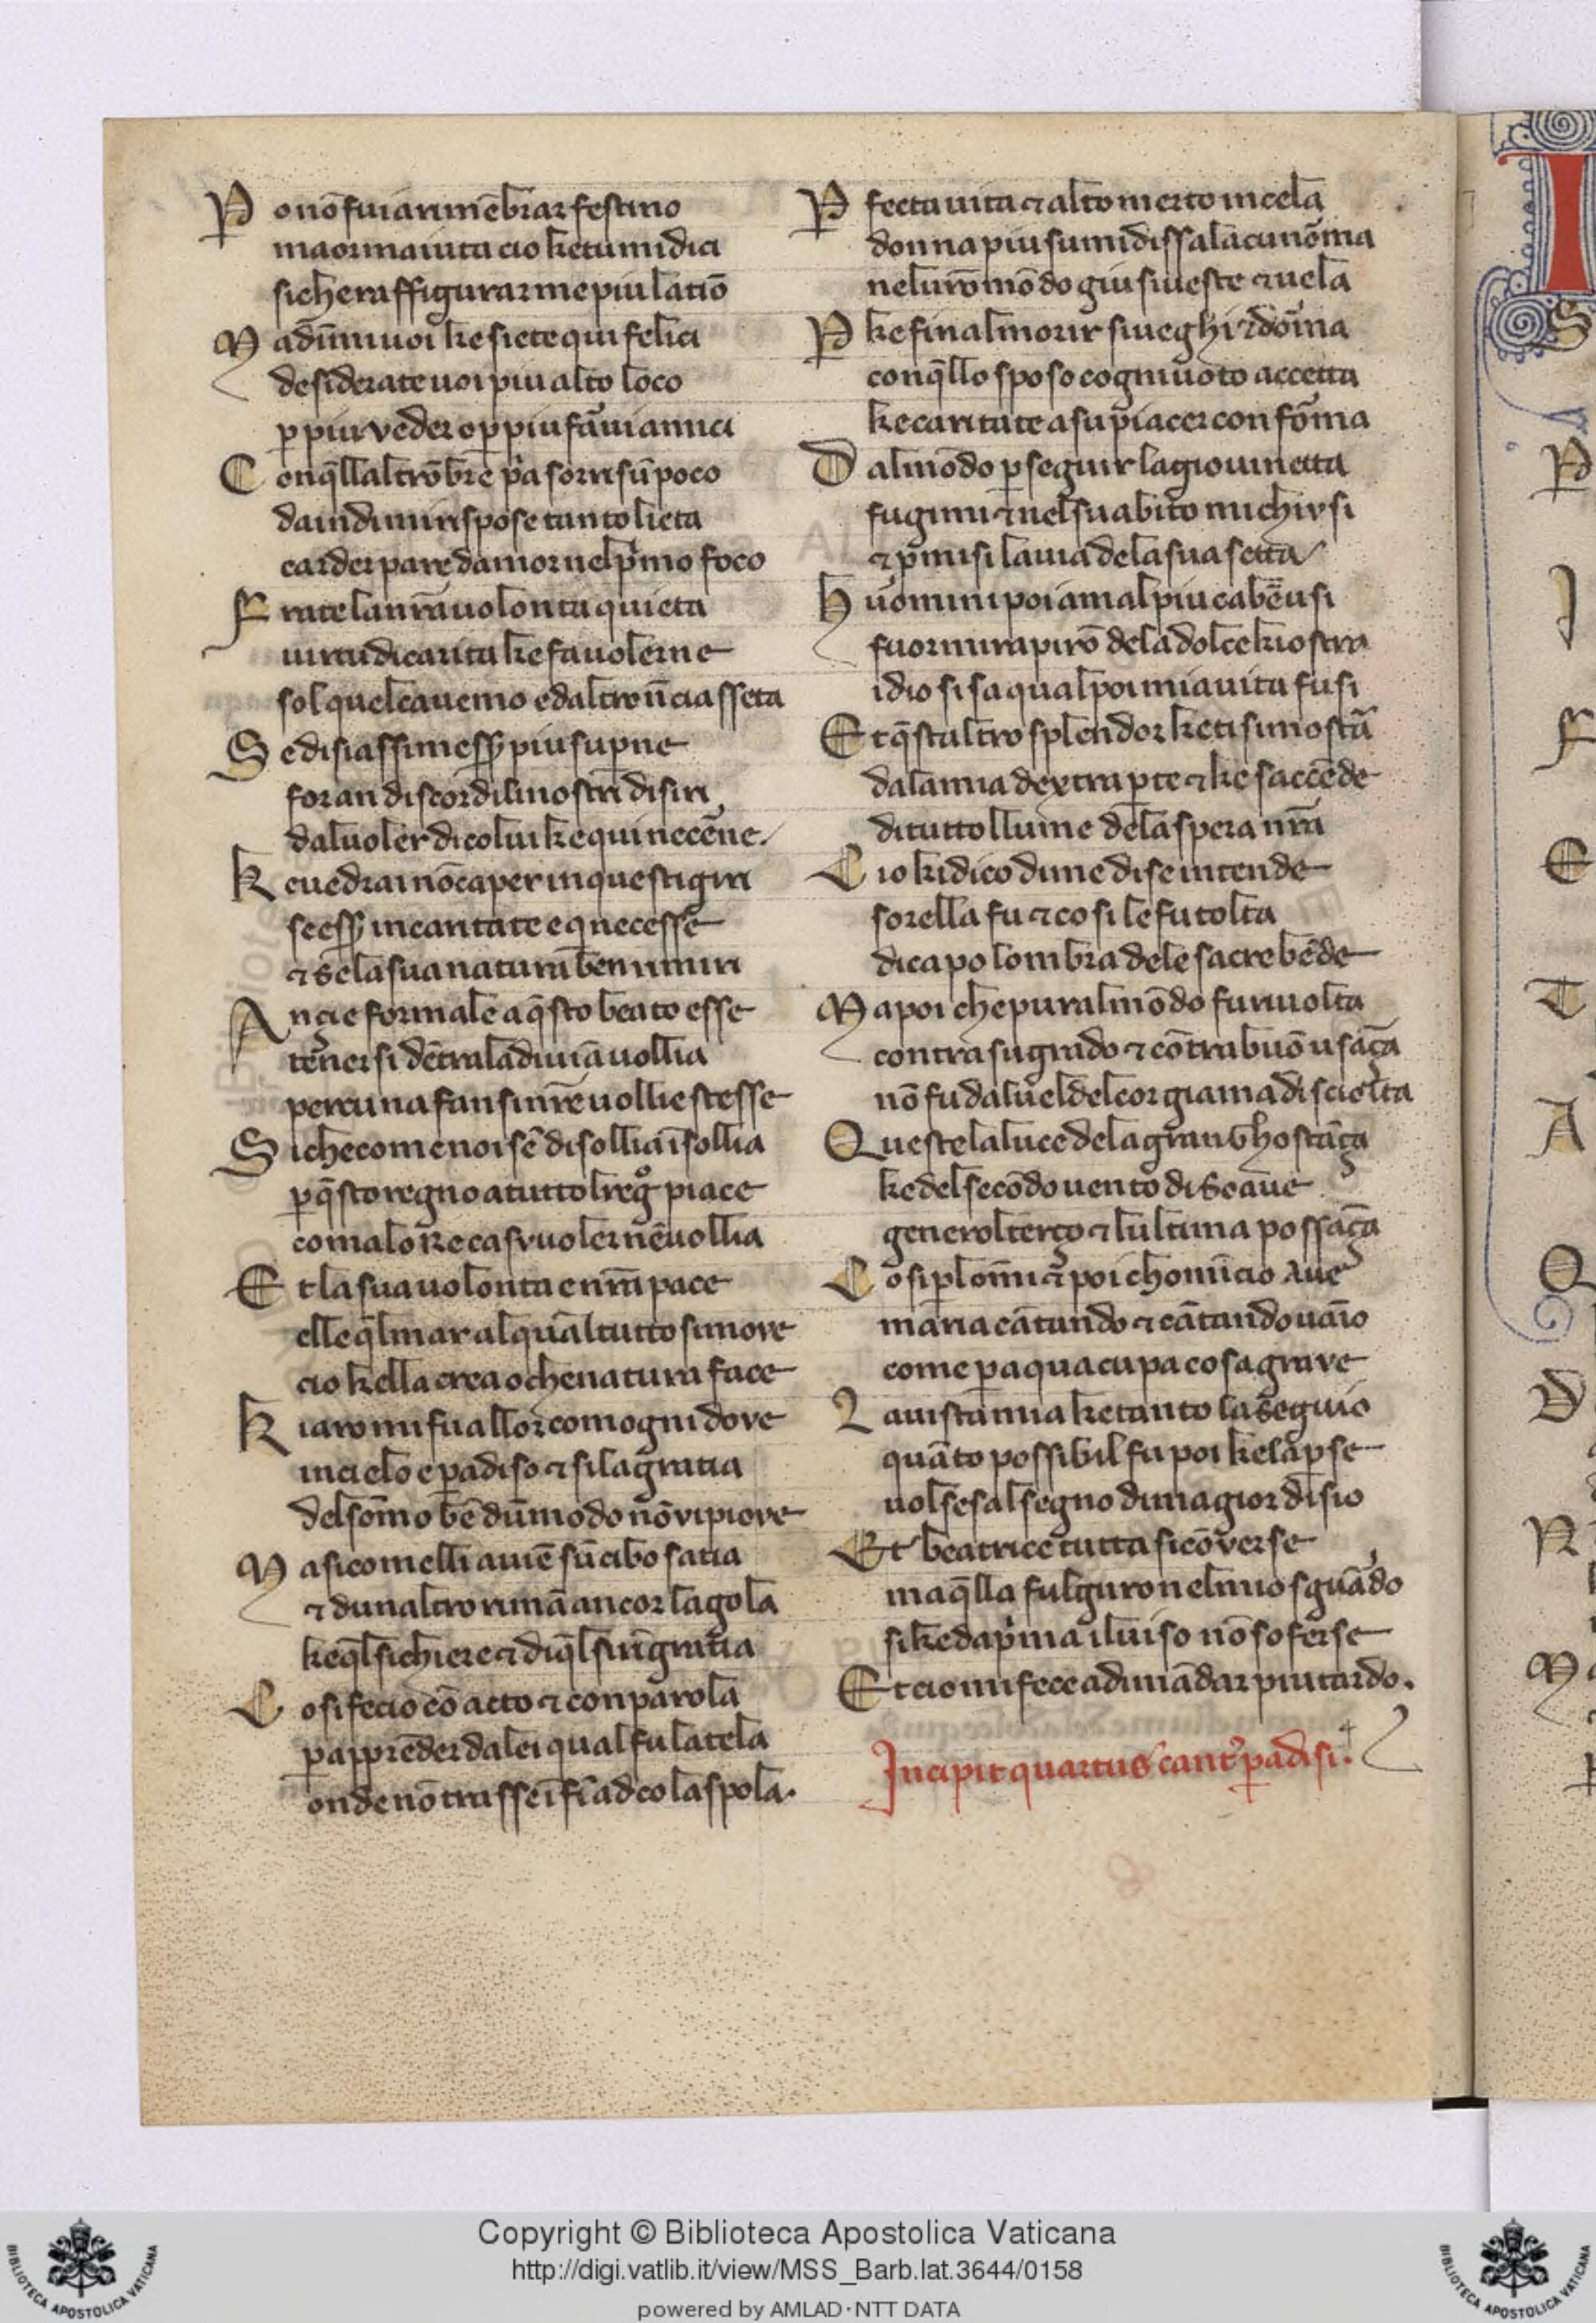 P onō fui a rimēbrar festino
ma or maiuta cio ke tu mi dici
si che raffigurar me piu latīo
M a dimmi voi ke siete qui felici
desiderate voi piu alto loco
p piu veder o p piu farui amici
C on q̄ll altrōbre pͥa sorrisū poco
da indi mi rispose tanto lieta
c arder parea damor nel pͥmo foco
F rate la nr̄a volonta quieta
uirtu di carita ke fa volerne
sol quel cauemo e daltro nō ci asseta
S e disiassimo esser piu supne
foran discordi li nostri disiri
dal voler di colui ke qui ne cēne
K e vedrai nō caper in questi giri
se esser in caritate e q necesse
⁊ se la sua natura ben rimiri
A nçi e formale a q̄sto beato esse
tenersi dētra la divina vollia
per cuna fansi nr̄e vollie stesse
S i che come noi sē di sollia ī sollia
p q̄sto regno a tutto l regͦ piace
com a lo re ca suo voler nē vollia
E t la sua volonta e nr̄a pace
ell e q̄l mar al qual tutto si move
cio kella crea o che natura face
K iaro mi fu allor com ogni dove
in cielo e padiso ⁊ si la gratia
del sōmo bē dū modo nō vi piove
M a si com elli aviē sū cibo satia
⁊ dun altro rimā ancor la gola
ke q̄l si chiere ⁊ di q̄l si rīgratia
C osi fec io cō acto ⁊ con parola
p apprēder da lei qual fu la tela
onde nō trasse īfī ad co la spola.
P fecta vita ⁊ alto merto incela
donna piu su mi disse a la cui nōma
nel vr̄o mōdo giu si veste ⁊ vela
P ke fin al morir si veghi ⁊ dorma
con q̄llo sposo cogni voto accetta
ke caritate a su piacer conforma
D al mōdo p seguir la giovinetta
fugimi ⁊ nel su abito mi chiusi
⁊ pͥmisi la via de la sua setta
H uomini poi a mal piu ca bē usi
fuor mi rapirō de la dolce kiostra
idio si sa qual poi mia vita fusi
E t q̄st altro splendor ke ti si mostra
da la mia dextra pte ⁊ ke saccēde
di tutto l lume de la spera nr̄a
C io ki dico di me di se intende
sorella fu ⁊ cosi le fu tolta
di capo lombra de le sacre bēde
M a poi che pur al mōdo fu rivolta
contra su grado ⁊ cōtra buō usāça
nō fu dal vel del cor giamai disciolta
Q uest e la luce de la gran Ghostāça
ke del secōdo vento di Soave
genero l terço ⁊ l ultima possāça
C osi plōmi ⁊ poi chominció Ave
maria cātando ⁊ cātando vanio
come p aqua cupa cosa grave
L a vista mia ke tanto la seguio
quāto possibil fu poi ke la pse
volsesi al segno di magior disio
Et beatrice tutta si cōverse
ma q̄lla fulguro nel mio sguardo
si ke da pͥma il viso nō soferse
E t cio mi fece a dimādar piu tardo.
Incipit quartus cant⁹ padisi.
I
S
P
I
F
E
T
A
Q
D
N
M
Copyright © Biblioteca Apostolica Vaticana
http://digi.vatlib.it/view/MSS_Barb.lat.3644/0158
powered by AMLAD·NTT DATA
BIBLIOTECA APOSTOLICA VATICANA
BIBLIOTECA APOSTOLICA VATICANA